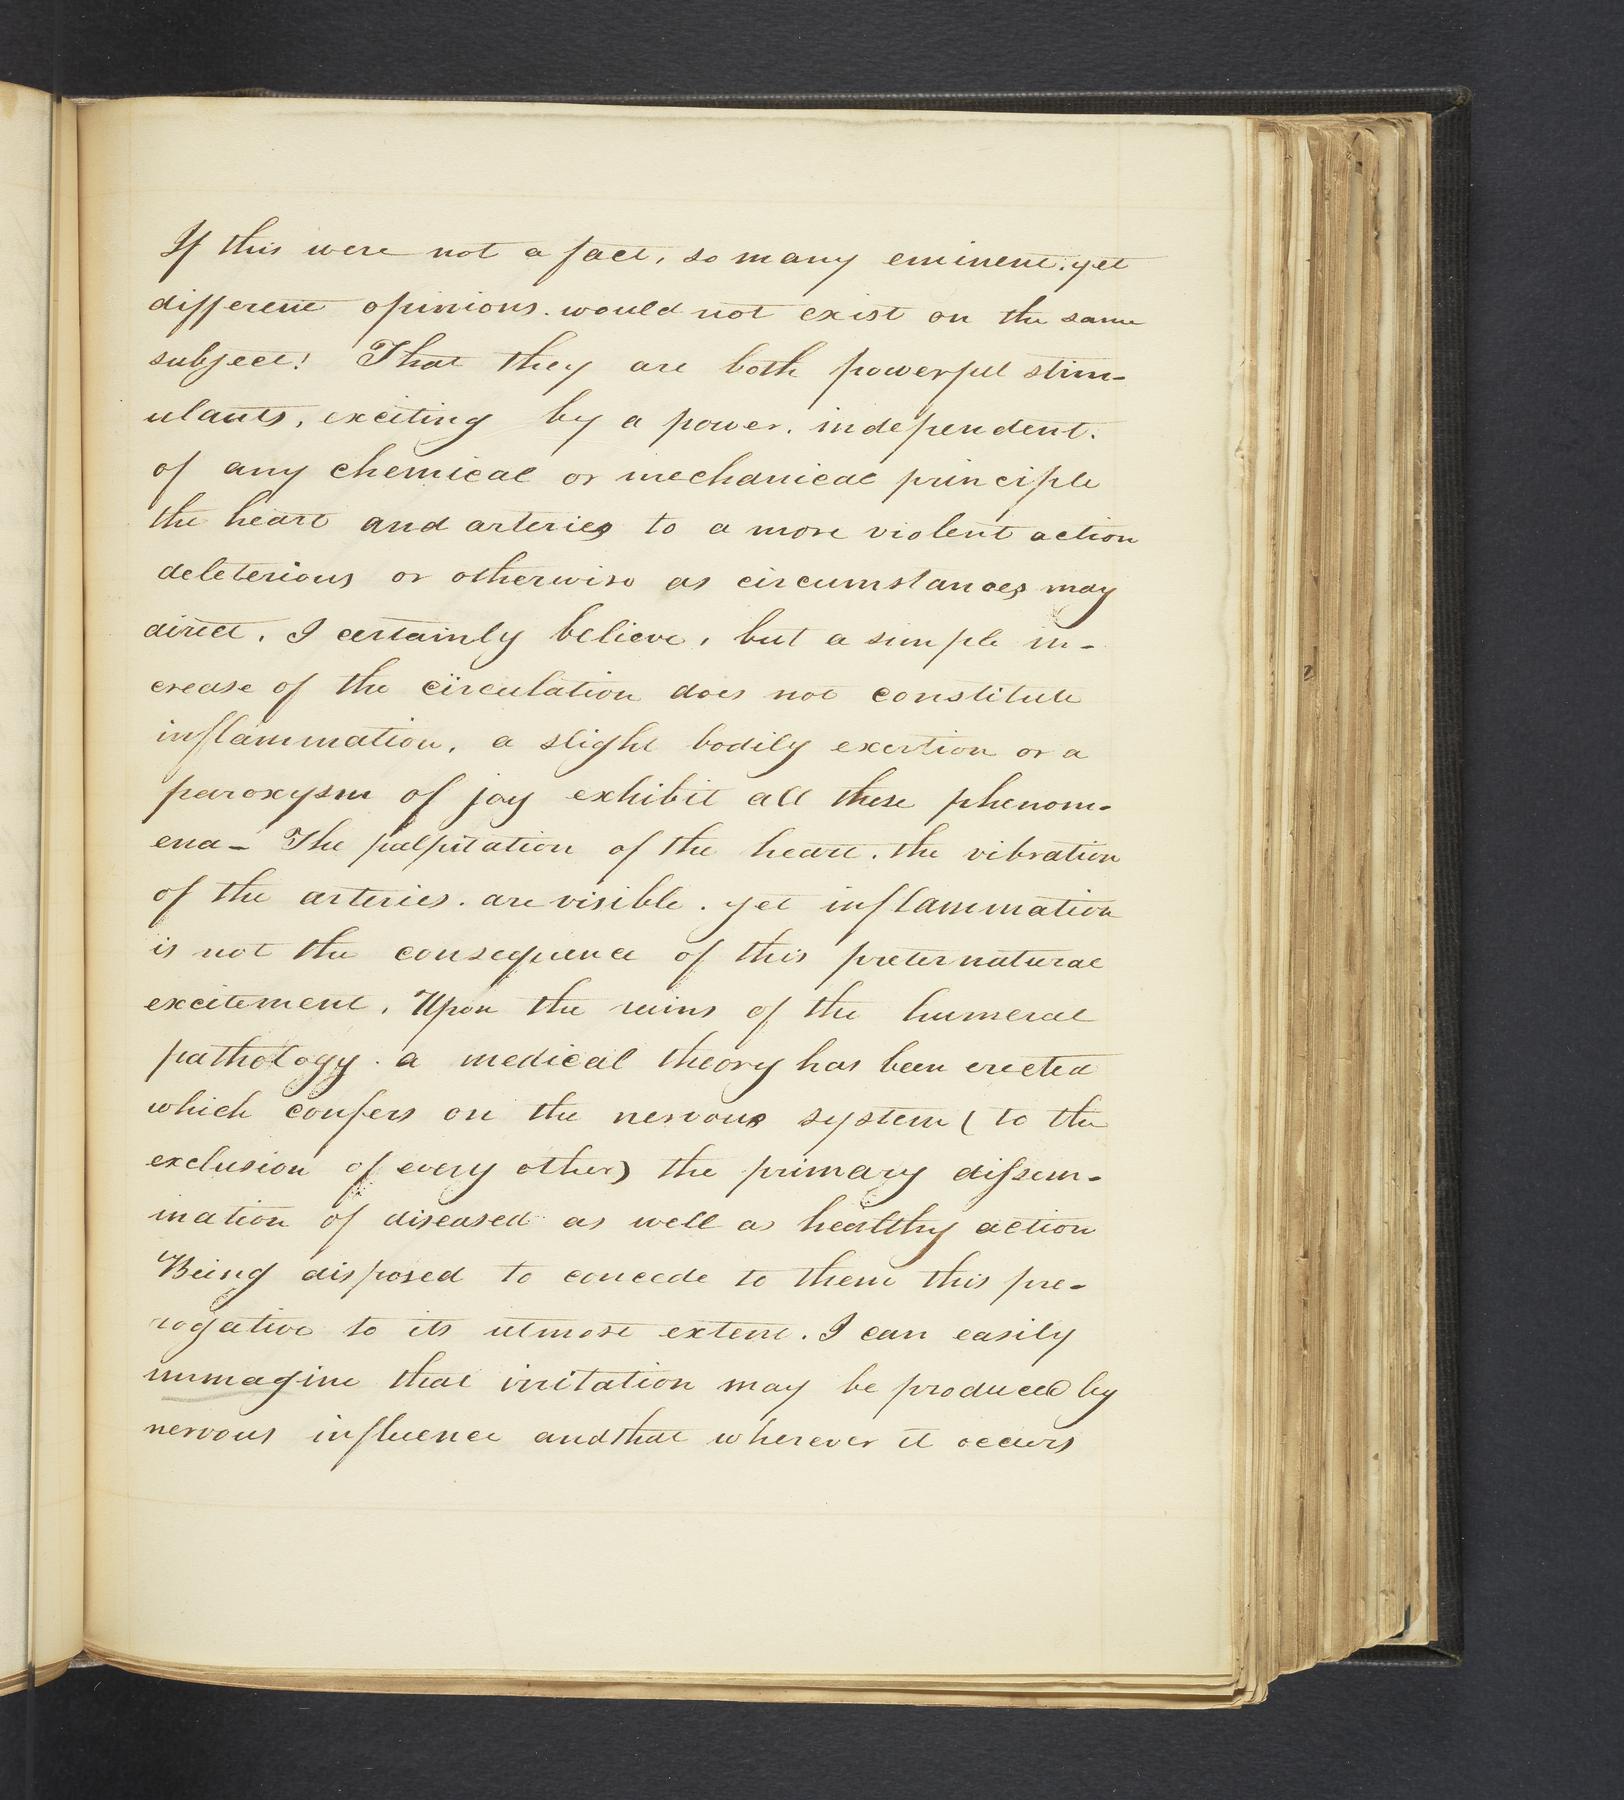 If this were not a fact, so many eminent, yet
different opinions. would not exist on the same
subject! That they are both powerful stim-
ulants, exciting by a power. independent.
of any chemical or mechanical principle
the heart and arteries to a more violent action
deleterious or otherwise as circumstances may
direct. I certainly believe, but a simple in-
crease of the circulation does not constitute
inflammation. a slight bodily exertion or a
paroxysm of joy exhibit all these phenom-
ena- The palpitation of the heart. the vibration
of the arteries. are visible. yet inflammation
is not the consequence of this preternatural
excitement. Upon the ruins of the humeral
pathology. a medical theory has been erected
which confers on the nervous system (to the
exclusion of every other) the primary dissem-
ination of diseased as well as healthy action
Being disposed to concede to them this pre-
rogative to its utmost extent. I can easily
immagine that irritation may be produced by
nervous influence and that wherever it occurs